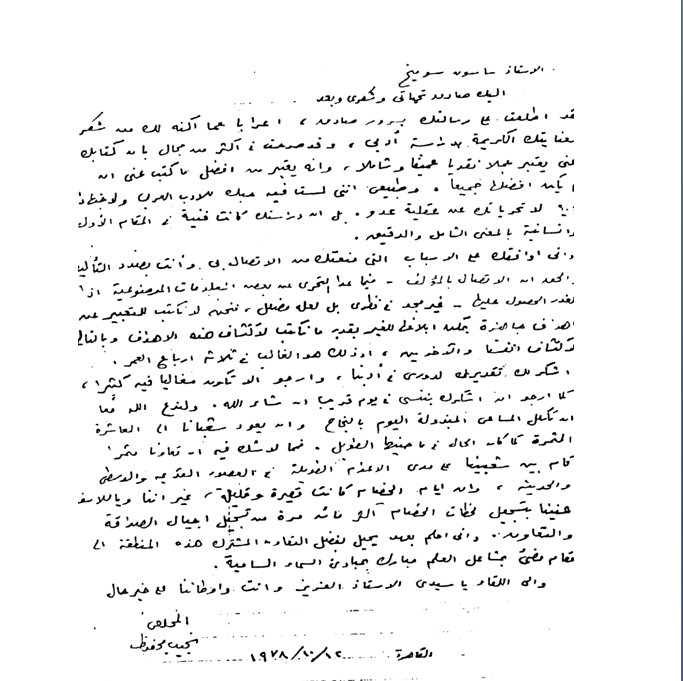 الاستاذ ساسون سوميخ
اليك صادق تحياتى وشكرى وبعد
فقد اطلعت على رسالتك بسرور صادق، اعرابا عما أكنه لك من شكر
لعنايتك الكريمة بدراسة أدبى، وقد صرحت فى أكثر من مجال بان كتابك
عنى يعتبر عملا نقديا عميقا وشاملا، وانه يعتبر من افضل ما كتب عنى ان
لم يكن افضلها جميعا. وطبيعى اننى لمست فيه حبك للادب العربى
لا تحرياتك عن عقلية عدو. بل ان دراستك كانت فنية فى المقام الأول
وانسانية بالمعنى الشامل والدقيق.
وانى اوافقك على الاسباب التى منعتك من الاتصال بى وأنت بصدد التأليف
والحق ان الاتصال بالمؤلف - فيما عدا التحرى عن بعض المعلومات الموضوعية اذا
تعذر الحصول عليها - غير مجد فى نظرى بل لعله مضلل، فنحن لا نكتب للتعبير عن
اهداف جاهزة يمكن ابلاغها للغير بقدر ما نكتب لاكتشاف هذه الاهداف وبالتالى
لاكتشاف انفسنا والآخرين، او ذلك هو الغالب فى ثلاثة ارباع العمر.
اشكر لك تقديرك لدورى فى أدبنا، وارجو الا تكون مغاليا فيه كثيرا،
كما ارجو ان اشكرك بنفسى فى يوم قريب ان شاء الله. ولندع الله معا
ان تكلل المساعى المبذولة اليوم بالنجاح وان يعود شعبانا الى العاشرة
المثمرة كما كان الحال فى ماضيها الطويل. فمما لا شك فيه ان تعاونا مثمرا
قام بين شعبينا على مدى الاعوام الطويلة فى العصور القديمة والوسطى
والحديثة، وان ايام الخصام كانت قصيرة وقليلة، غير اننا وياللاسف
عنينا بتسجيل لحظات الخصام أكثر مائة مرة من تسجيل اجيال الصداقة
والتعاون. وانى احلم بعهد يحيل بفضل التعاون المشترك هذه المنطقة الى
مقام مضئ بمشاعل العلم مبارك بمبادئ السماء السامية.
والى اللقاء يا سيدى الاستاذ العزيز وانت واوطاننا على خير حال
المخلص
نجيب محفوظ
القاهرة ١٩٧٨/١٠/١٢